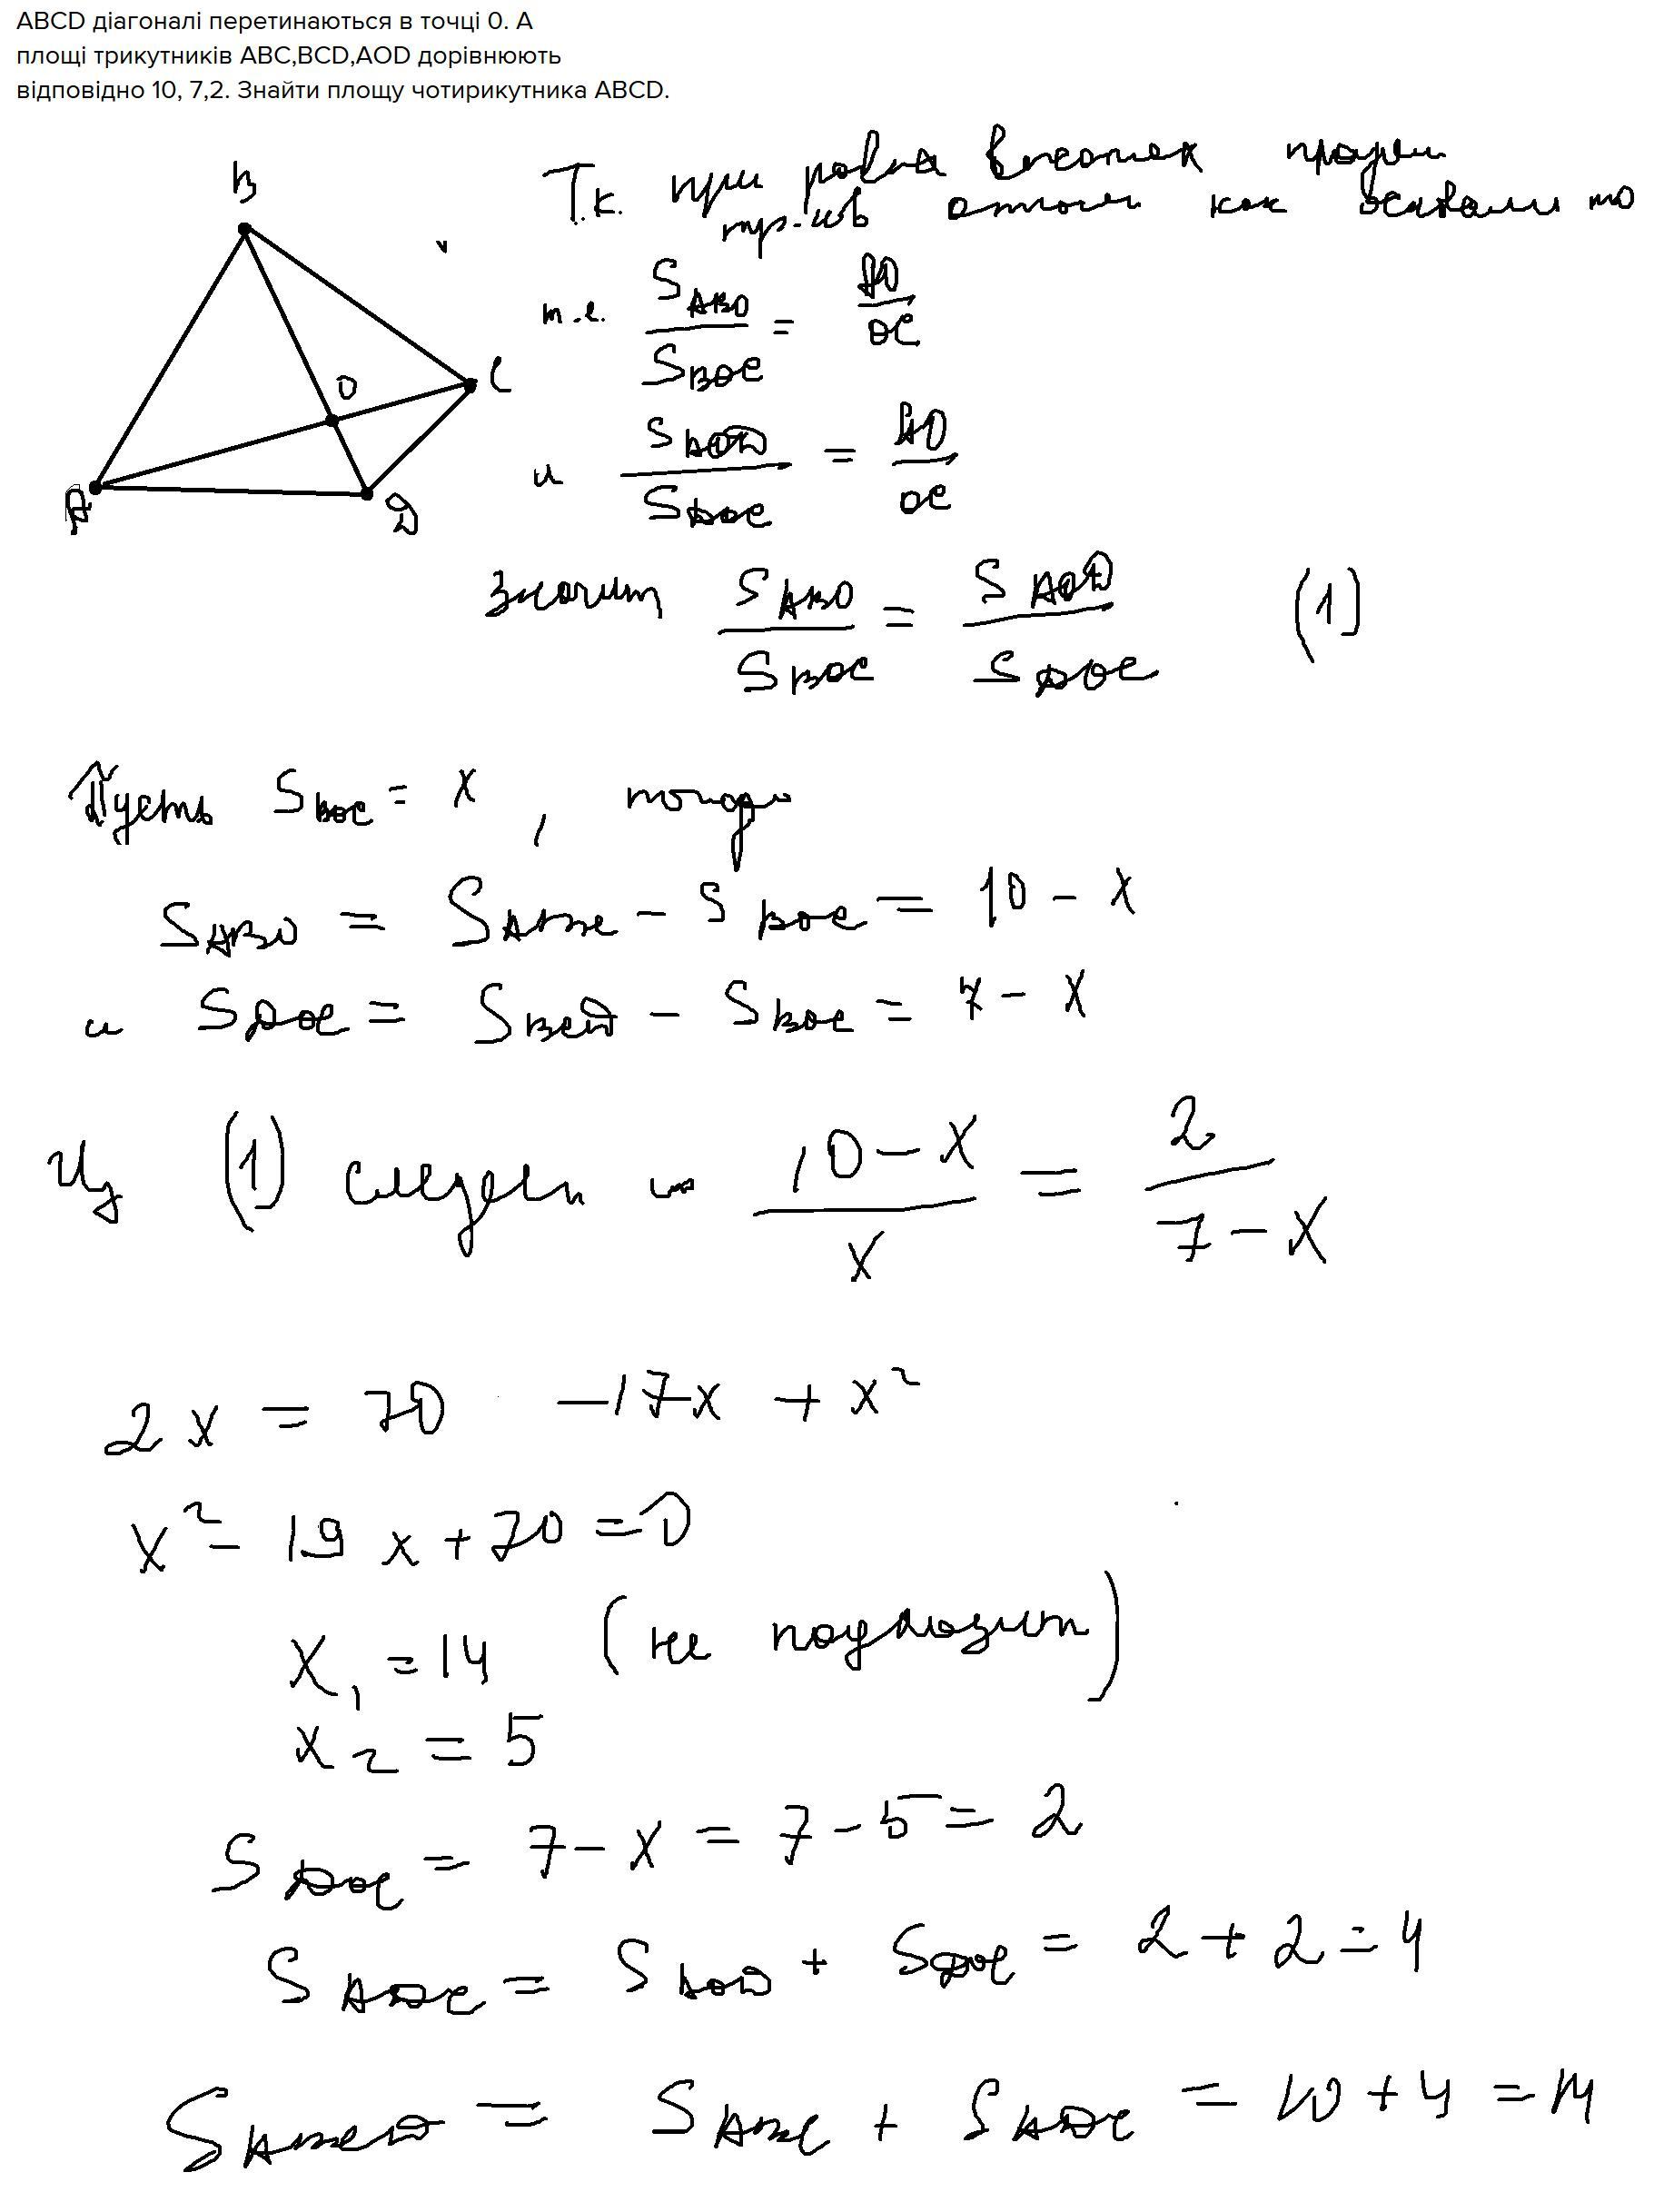 ABCD діагоналі перетинаються в точці 0. А
площі трикутників ABC,BCD,AOD дорівнюють
відповідно 10, 7,2. Знайти площу чотирикутника ABCD.
B
O
C
A
D
Т.к. при
тр-ив как то
т.е. S_ABO / S_BOC = AO / OC
и S_AOD / S_DOC = AO / OC
Значит S_ABO / S_BOC = S_AOD / S_DOC (1)
Пусть S_BOC = x, тогда
S_ABO = S_ABC - S_BOC = 10 - x
и S_DOC = S_BCD - S_BOC = 7 - x
Из (1) следует (10 - x) / x = 2 / (7 - x)
2x = 70 - 17x + x²
x² - 19x + 70 = 0
x₁ = 14 (не подходит)
x₂ = 5
S_DOC = 7 - x = 7 - 5 = 2
S_ADC = S_AOD + S_DOC = 2 + 2 = 4
S_ABCD = S_ABC + S_ADC = 10 + 4 = 14